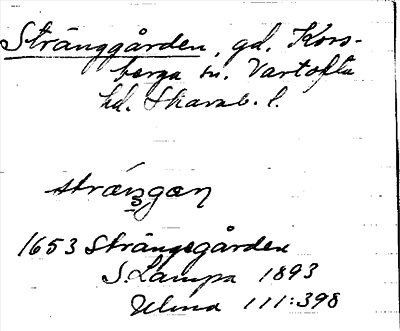 Stränggården, gd. Kors-
berga sn. Vartofta
hd. Skarab. l.
strängan
1653 Strängegården
S. Lampa 1893
Ulma 111:398